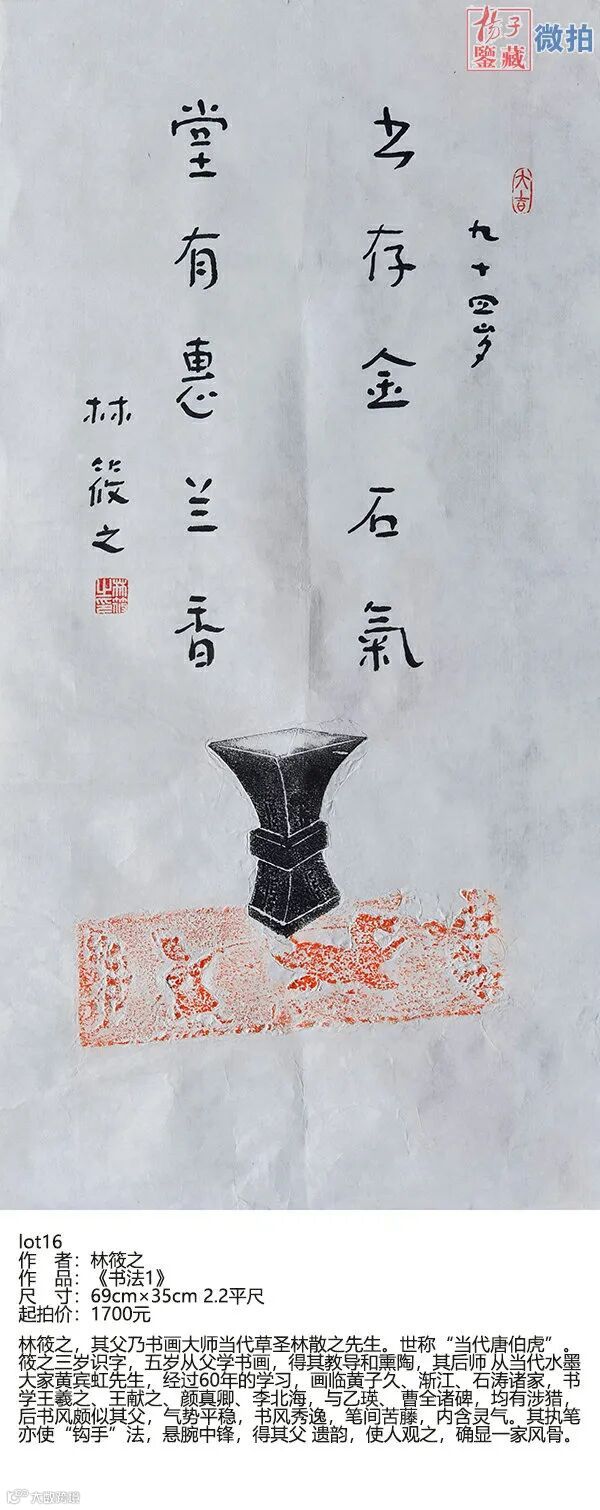 杨子
鉴藏
微拍
大吉
九十四岁
书存金石氣
堂有惠兰香
林筱之
林筱之印
lot16
作 者：林筱之
作 品：《书法1》
尺 寸：69cm×35cm 2.2平尺
起拍价：1700元
林筱之，其父乃书画大师当代草圣林散之先生。世称“当代唐伯虎”。
筱之三岁识字，五岁从父学书画，得其教导和熏陶，其后师 从当代水墨
大家黄宾虹先生，经过60年的学习，画临黄子久、渐江、石涛诸家，书
学王羲之、王献之、颜真卿、李北海，与乙瑛、曹全诸碑，均有涉猎，
后书风颇似其父，气势平稳，书风秀逸，笔间苦藤，内含灵气。其执笔
亦使“钩手”法，悬腕中锋，得其父 遗韵，使人观之，确显一家风骨。
大数跨境